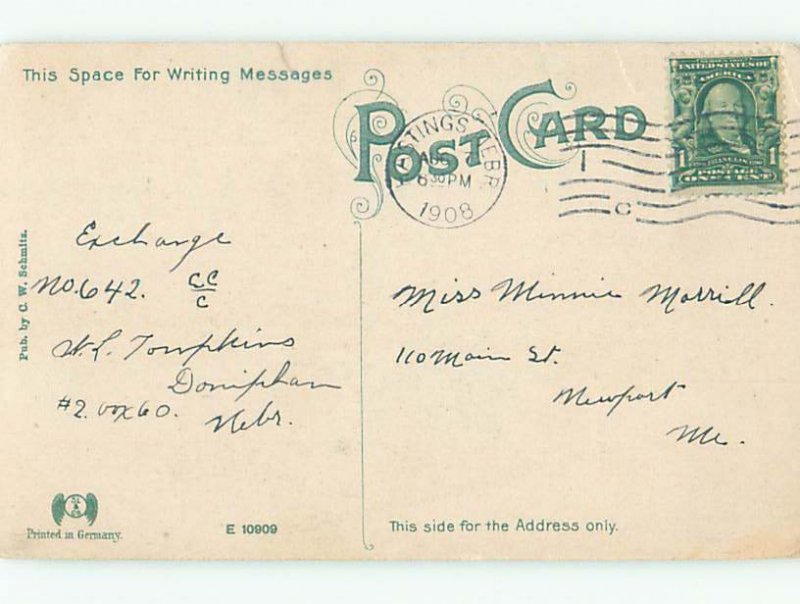 This Space For Writing Messages
POST CARD
HASTINGS NEBR
AUG
6 30 PM
1908
C
SERIES 1902
UNITED STATES OF
AMERICA
1
1
FRANKLIN
POSTAGE
ONE CENT
Pub. by C. W. Schmitz.
Exchange
No. 642. CC
C
W. L. Tompkins
Doniphan
#2. Box 60.
Nebr.
Miss Minnie Morrill.
110 Main St.
Newport
Me.
Printed in Germany.
E 10909
This side for the Address only.